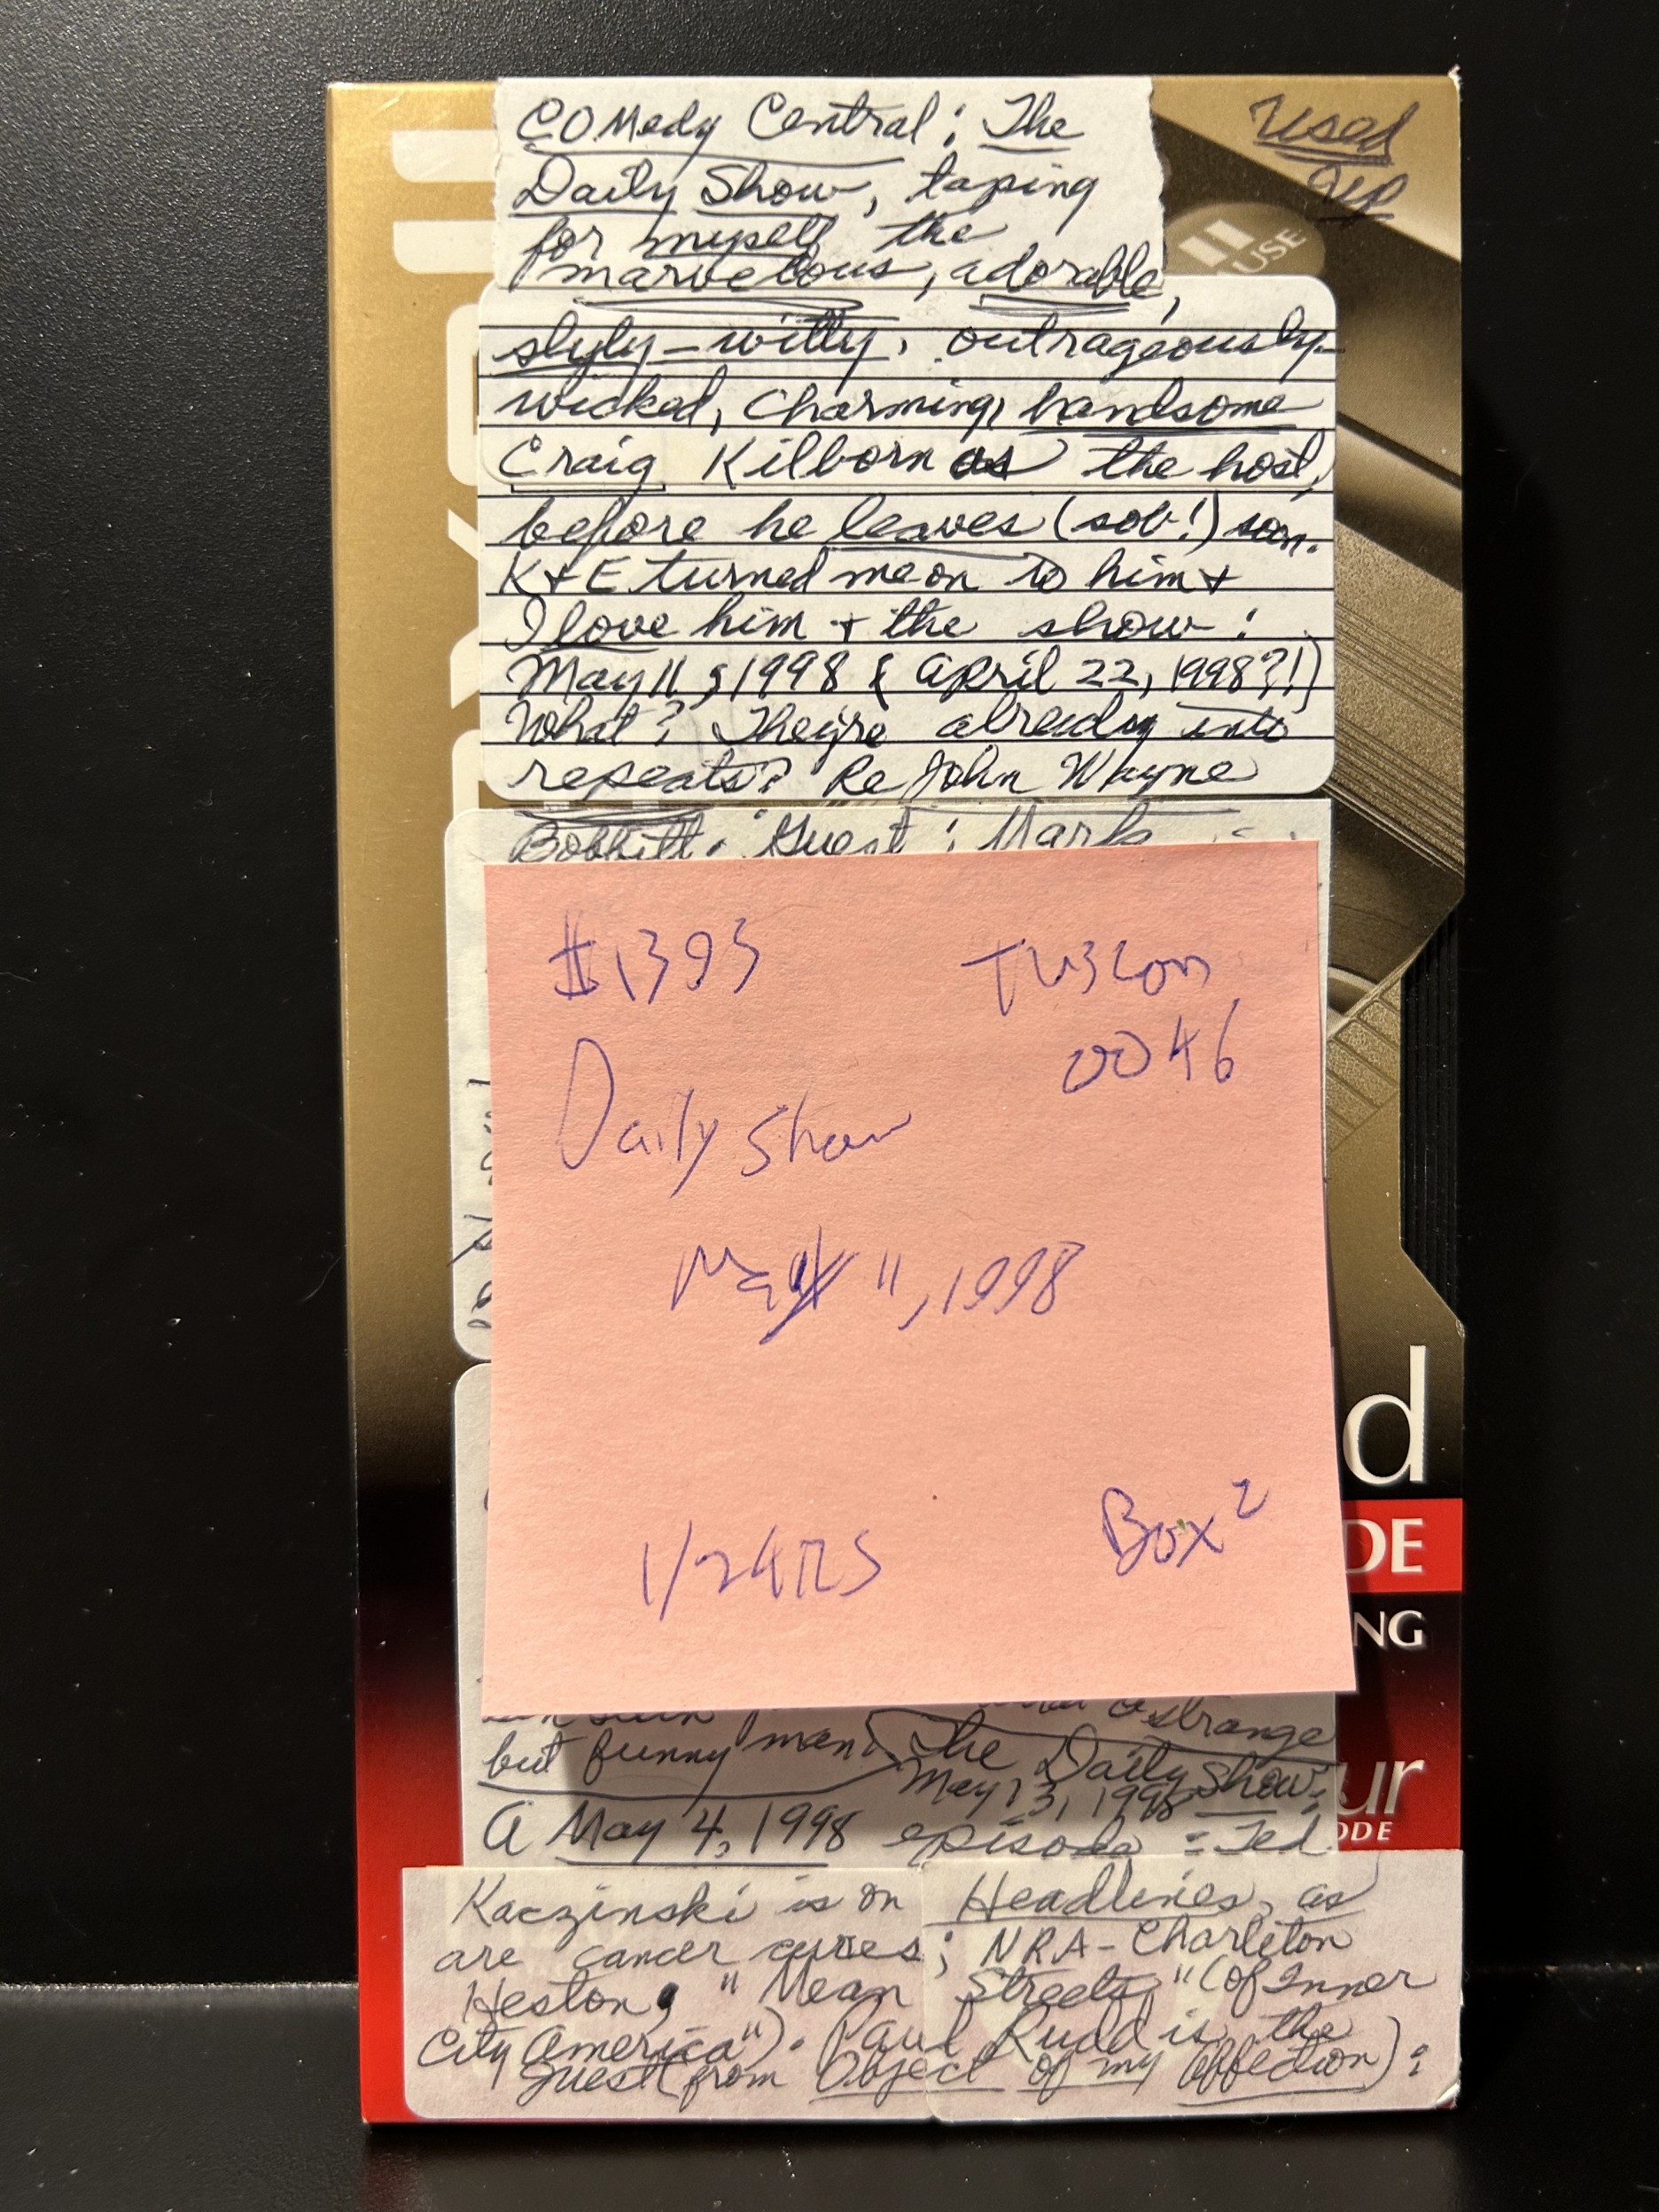 Comedy Central: The
Used
Up
Daily Show, taping
for myself the
marvelous, adorable,
PAUSE
slyly-witty, outrageously-
wicked, charming, handsome
Craig Kilborn as the host,
before he leaves (sob!) soon.
K+E turned me on to him +
I love him + the show:
May 11, 1998 ( April 22, 1998?!)
What? They're already into
repeats? Re John Wayne
Bobbitt. Guest: Mark
#1393
Tuscon
0046
Daily Show
May 11, 1998
1/24TZS
Box 2
d
DE
NG
strange
but funny man. The Daily Show:
May 13, 1998
ur
ODE
A May 4, 1998 episode: Ted
Kaczinski is on Headlines, as
are cancer cures; NRA-Charlton
Heston, "Mean Streets" (of Inner
City America"). Paul Rudd is the
guest (from Object of my Affection):